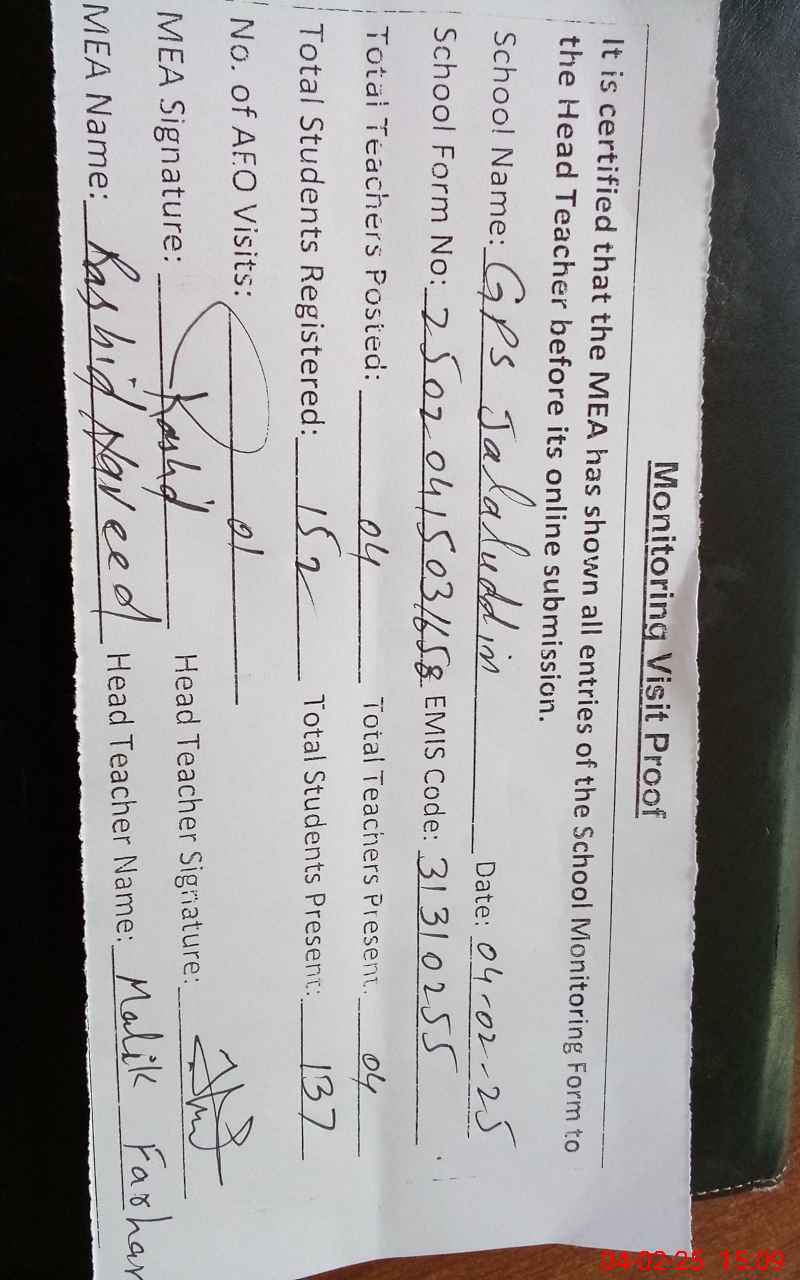 Monitoring Visit Proof
It is certified that the MEA has shown all entries of the School Monitoring Form to
the Head Teacher before its online submission.
School Name: GPS Jalaluddin Date: 04-02-25
School Form No: 25020415031658 EMIS Code: 31310255
Total Teachers Posted: 04 Total Teachers Present: 04
Total Students Registered: 152 Total Students Present: 137
No. of AEO Visits: 01
MEA Signature: Rashid Head Teacher Signature:
MEA Name: Rashid Naveed Head Teacher Name: Malik Farhan
04-02-25 15:09